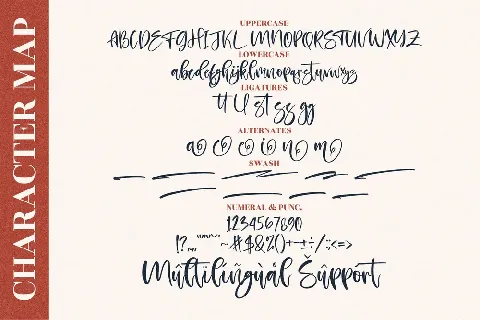 CHARACTER MAP
UPPERCASE
ABCDEFGHIJKLMNOPQRSTUVWXYZ
LOWERCASE
abcdefghijklmnopqrstuvwxyz
LIGATURES
tt ll st ss gg
ALTERNATES
a e o i n m
SWASH
NUMERAL & PUNC.
1234567890
!?.,, ~#$&%()+-÷/:;<=>
Múltilíñgùàl Šûppört